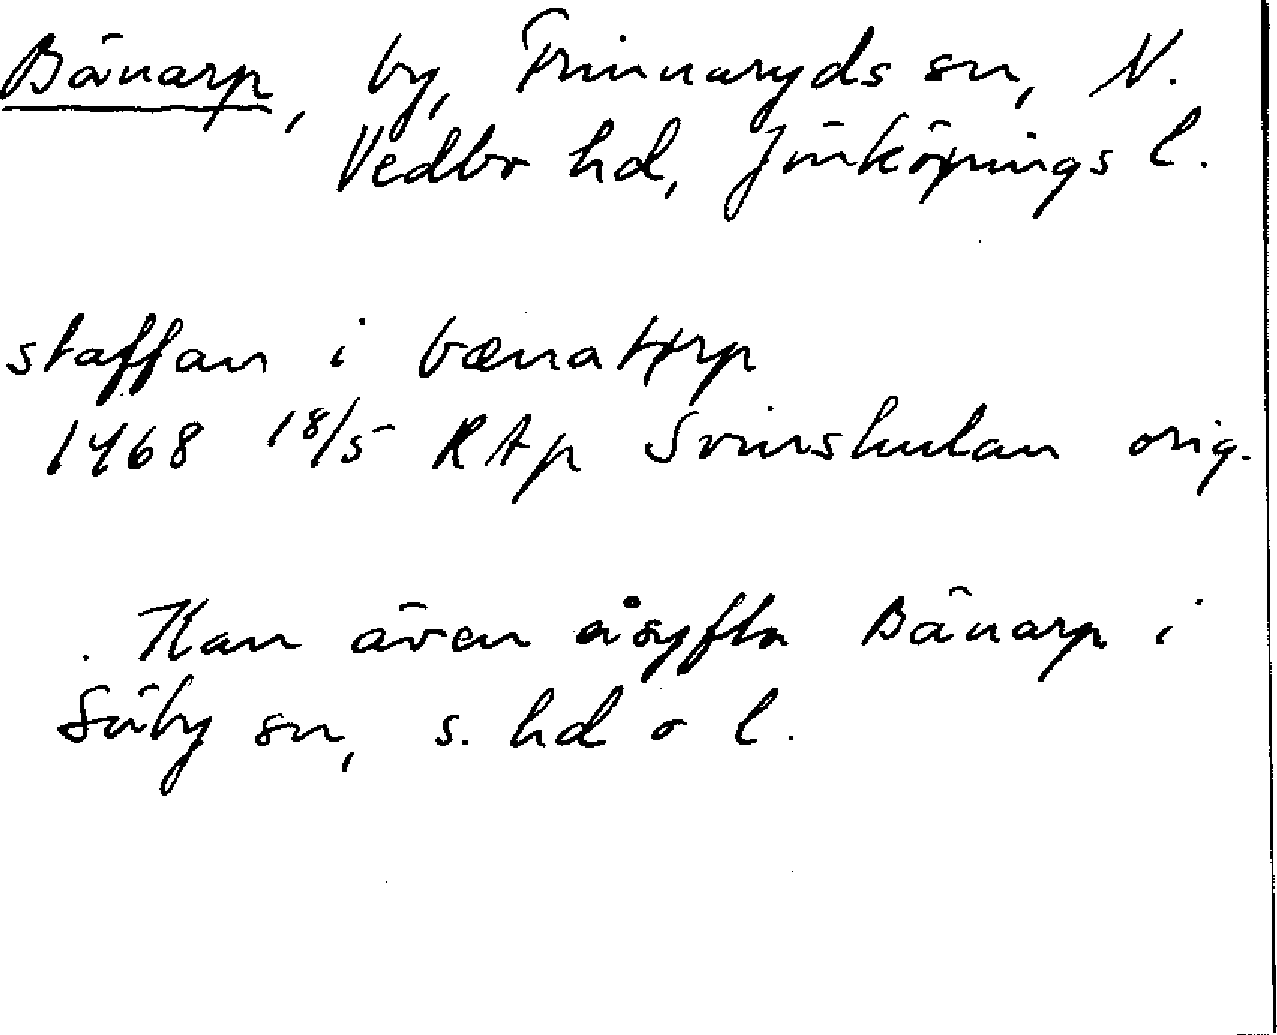 Bänarp, by, Frinnaryds sn, N.
Vedbo hd, Jönköpings l.
staffan i bænatorp
1468 18/5 RAp Svinshulan orig.
Kan även åsyfta Bänarp i
Säby sn, s. hd o l.